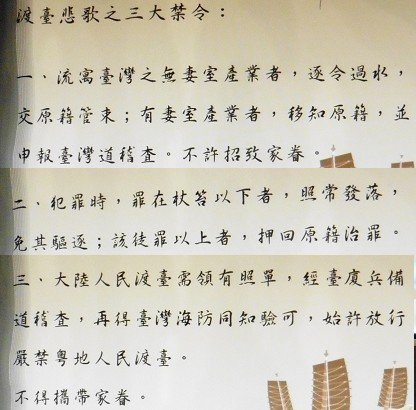 渡臺悲歌之三大禁令：
一、流寓臺灣之無妻室產業者，逐令過水，
交原籍管束；有妻室產業者，移知原籍，並
申報臺灣道稽查。不許招致家眷。
二、犯罪時，罪在杖笞以下者，照常發落，
免其驅逐；該徒罪以上者，押回原籍治罪。
三、大陸人民渡臺需領有照單，經臺廈兵備
道稽查，再得臺灣海防同知驗可，始許放行
嚴禁粵地人民渡臺。
不得攜帶家眷。